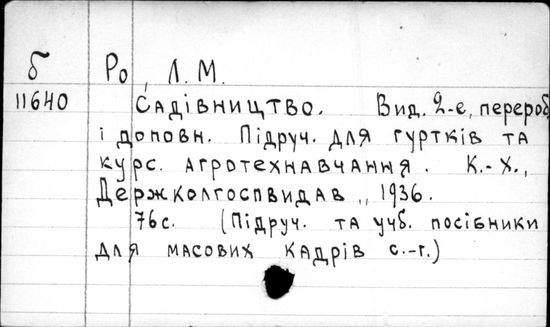 б Ро, Л. М.
11640 Садівництво. Вид. 2-е, перероб.
і доповн. Підруч. для гуртків та
курс. агротехнавчання. К.-Х.,
Держколгоспвидав, 1936.
76с. (Підруч. та учб. посібники
для масових кадрів с.-г.)